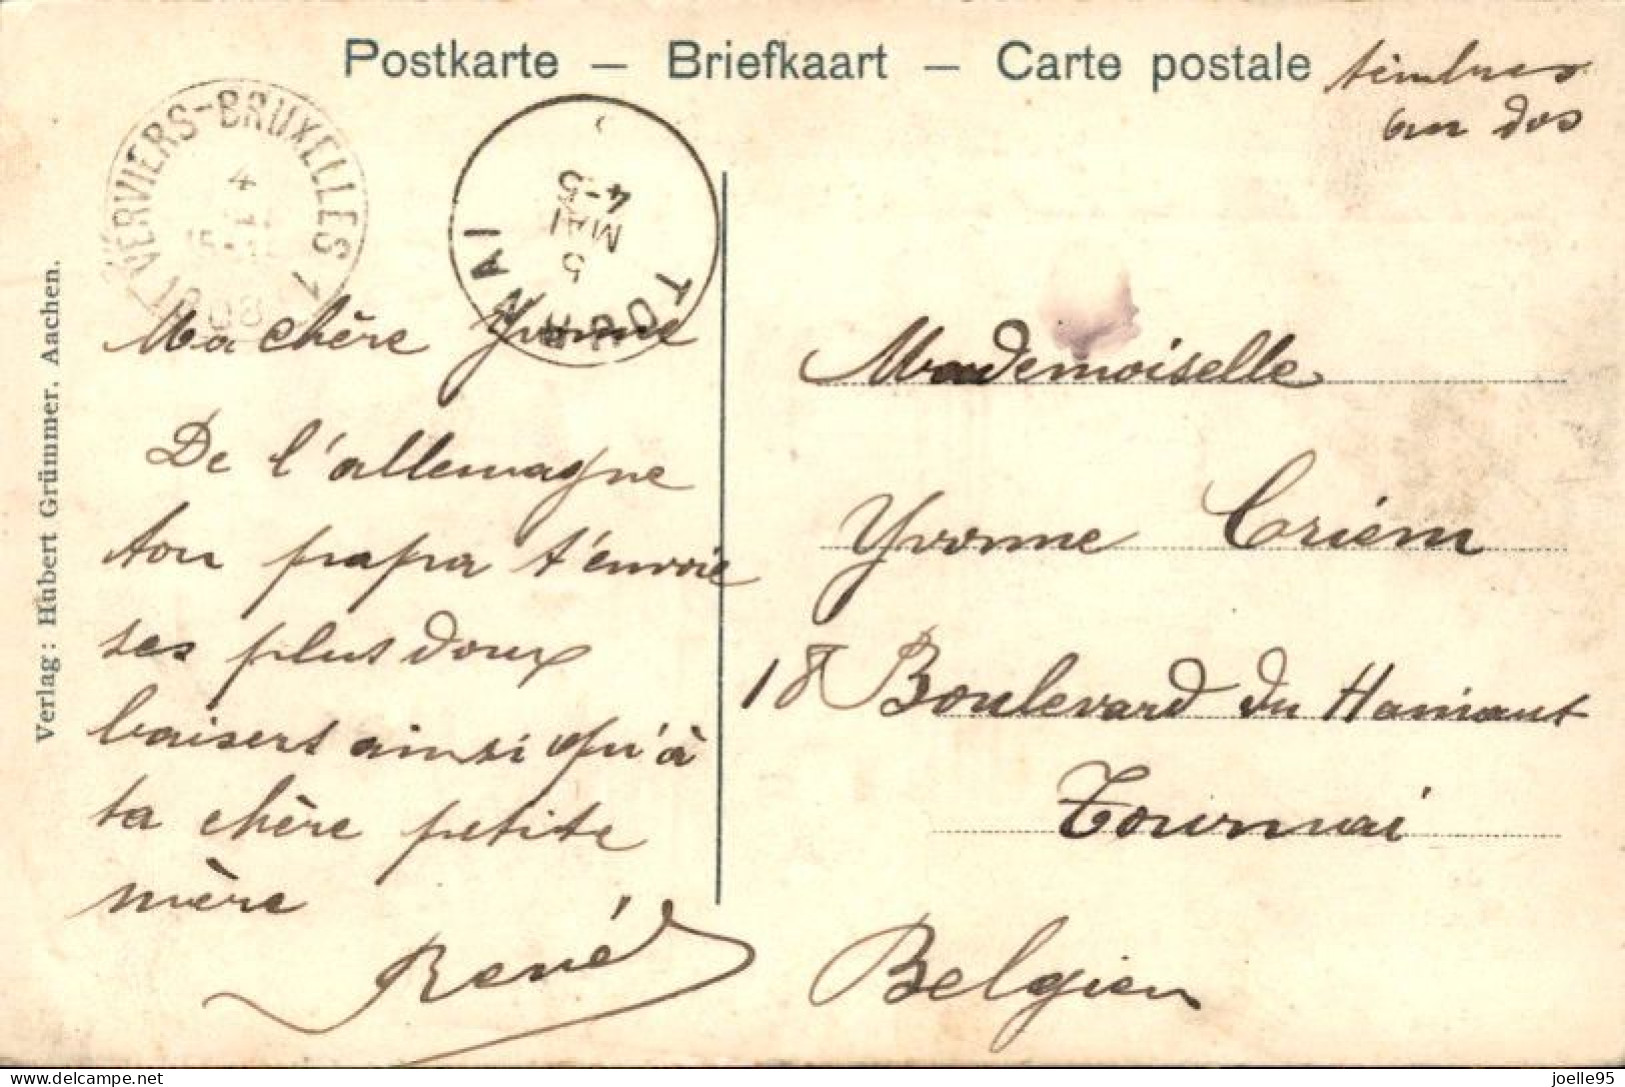 Postkarte — Briefkaart — Carte postale
timbres
au dos
VERVIERS-BRUXELLES 1
4
1908
TOURNAI
5
MAI
4-5
Verlag: Hubert Grümmer, Aachen.
Ma chère Yvonne
De l'allemagne
ton papa t'envoie
ses plus doux
baisers ainsi qu'à
ta chère petite
mère
René
Mademoiselle
Yvonne Criém
18 Boulevard du Hainaut
Tournai
Belgien
joelle95